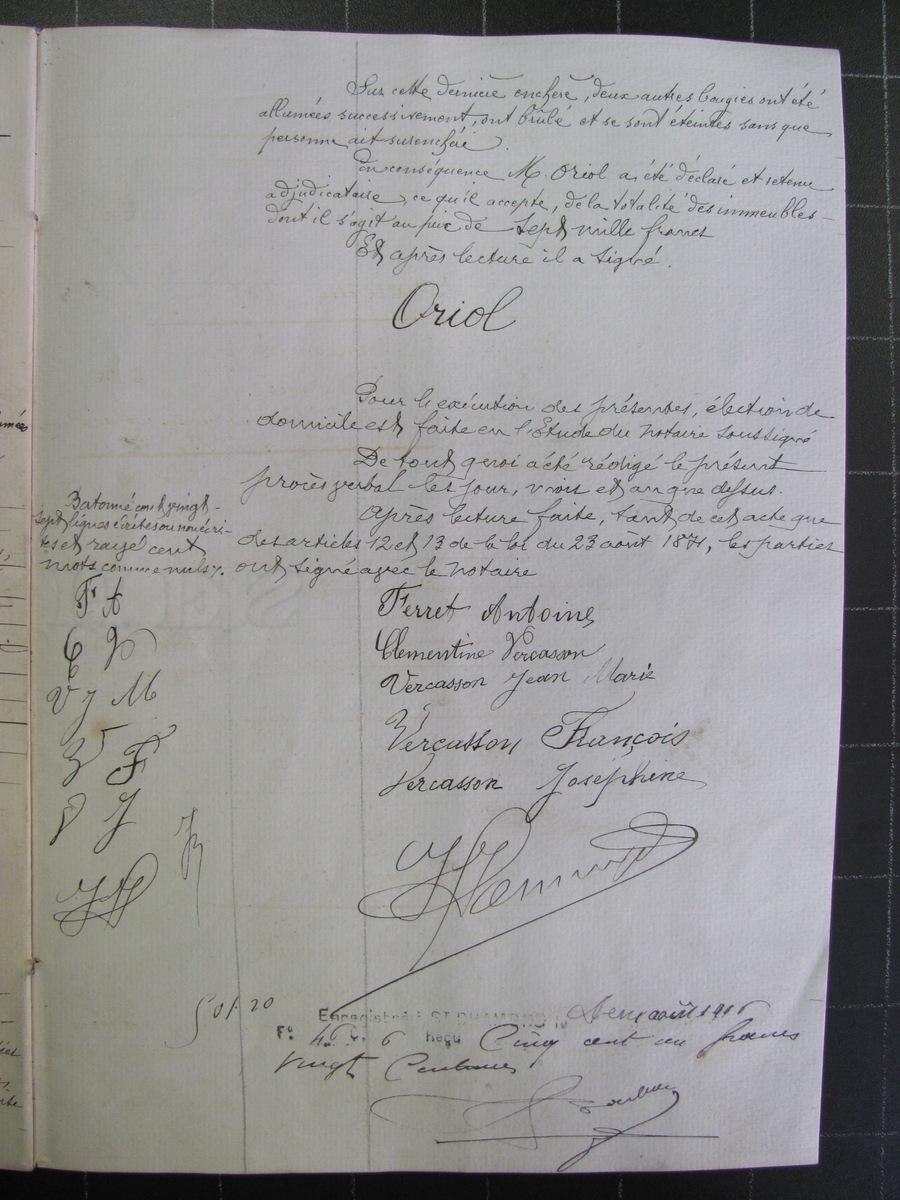 Sur cette dernière enchère, deux autres bougies ont été
allumées successivement, ont brûlé et se sont éteintes sans que
personne ait surenchéri.
En conséquence M. Oriol a été déclaré et retenu
adjudicataire, ce qu'il accepte, de la totalité des immeubles
dont il s'agit au prix de sept mille francs
Et après lecture il a signé.
Oriol
Pour l'exécution des présentes, élection de
domicile est faite en l'Etude du notaire soussigné
De tout quoi a été rédigé le présent
procès verbal les jour, mois et an que dessus.
Après lecture faite, tant de cet acte que
des articles 12 et 13 de la loi du 23 août 1871, les parties
ont signé avec le notaire
Batonné cent vingt
sept lignes écrites ou non écri-
tes et rayé cent
mots comme nuls.
F A
C V
V J M
V F
V J
Ferret Antoine
Clementine Vercasson
Vercasson Jean Marie
Vercasson François
Vercasson Joséphine
501.20
Enregistré à ST CHAMOND le août 1906
F° 46 C. 6 Reçu Cinq cent un francs
vingt Centimes